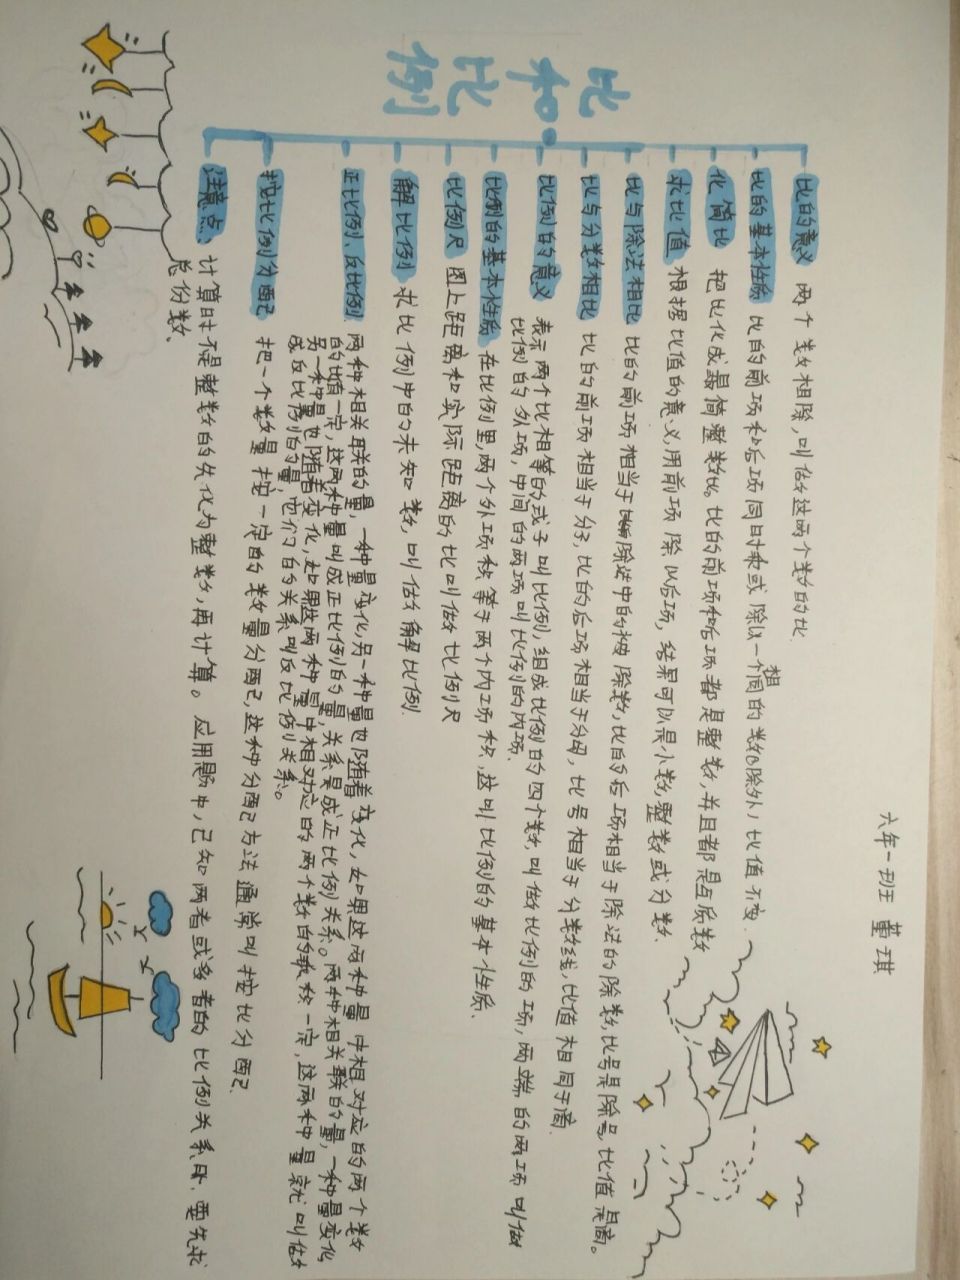 六年一班 董琪
比和比例
比的意义 两个数相除,叫做这两个数的比.
比的基本性质 比的前项和后项同时乘或除以一个相同的数(0除外),比值不变.
化简比 把比化成最简整数比。比的前项和后项都是整数,并且都是互质数
求比值 根据比值的意义,用前项除以后项,结果可以是小数,整数或分数.
比与除法相比 比的前项相当于除法中的被除数,比的后项相当于除法的除数,比号是除号,比值是商。
比与分数相比 比的前项相当于分子,比的后项相当于分母,比号相当于分数线,比值相同于商.
比例的意义 表示两个比相等的式子叫比例,组成比例的四个数,叫做比例的项,两端的两项叫做
比例的外项,中间的两项叫比例的内项.
比例的基本性质 在比例里,两个外项积等于两个内项积,这叫比例的基本性质.
比例尺 图上距离和实际距离的比叫做比例尺
解比例 求比例中的未知数,叫做解比例.
正比例、反比例 两种相关联的量,一种量变化,另一种量也随着变化,如果这两种量中相对应的两个数
的比值一定,这两种量叫成正比例的量,关系是成正比例关系。两种相关联的量,一种量变化
另一种量也随着变化,如果这两种量中相对应的两个数的乘积一定,这两种量就叫做
成反比例的量,它们的关系叫反比例关系。
按比例分配 把一个数量按一定的数量分配,这种分配方法通常叫按比分配.
注意点: 计算时不是整数的先化为整数,再计算。应用题中,已知两者或多者的比例关系时,要先求
总份数.